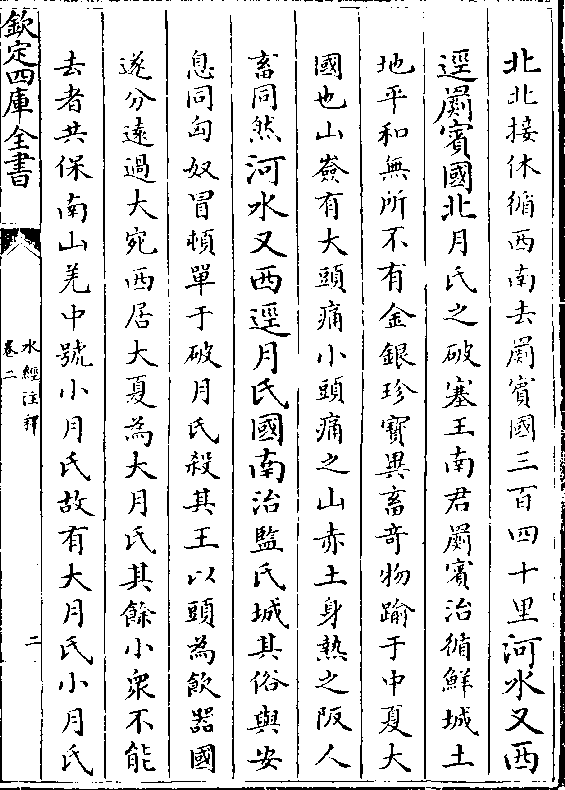 北北接休循西南去罽賓國三百四十里河水又西
逕罽賓國北月氏之破塞王南君罽賓治循鮮城土
地平和無所不有金銀珍寶異畜奇物踰于中夏大
國也山嶮有大頭痛小頭痛之山赤土身熱之阪人
畜同然河水又西逕月氏國南治監氏城其俗與安
息同匈奴冒頓單于破月氏殺其王以頭為飲器國
遂分遠過大宛西居大夏為大月氏其餘小衆不能
去者共保南山羌中號小月氏故有大月氏小月氏
欽定四庫全書
水經注釋
卷二
二